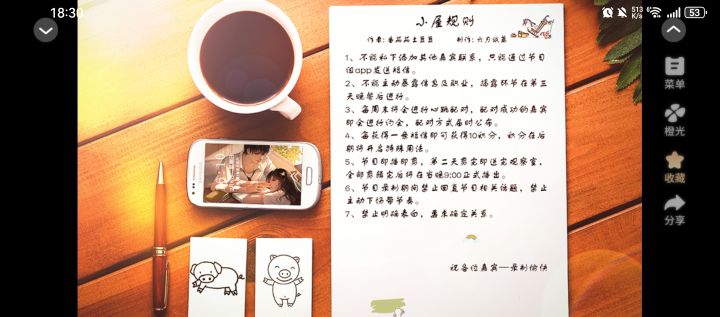 18:30
513
K/s
53
小屋规则
作者:番茄茄土豆豆 制作:六月欲暮
1、不能私下添加其他嘉宾联系,只能通过节目
组app发送短信。
2、不能主动暴露信息及职业,揭露环节在第三
天晚餐后进行。
3、每周末将会进行心跳配对,配对成功的嘉宾
即会进行约会,配对方式届时公布。
4、每获得一条短信即可获得10积分,积分在后
期将开启特殊用法。
5、节目即播即剪,第二天剪完即送完观察室,
全部剪辑完后将在当晚9:00正式播出。
6、节目录制期间禁止回复节目相关话题,禁止
主动下场带节奏。
7、禁止明确表白,兼未确定关系。
祝各位嘉宾一录制愉快
菜单
橙光
收藏
分享